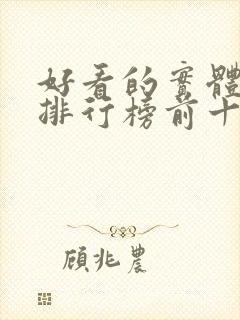 好看的實體
排行榜前十
顧兆農